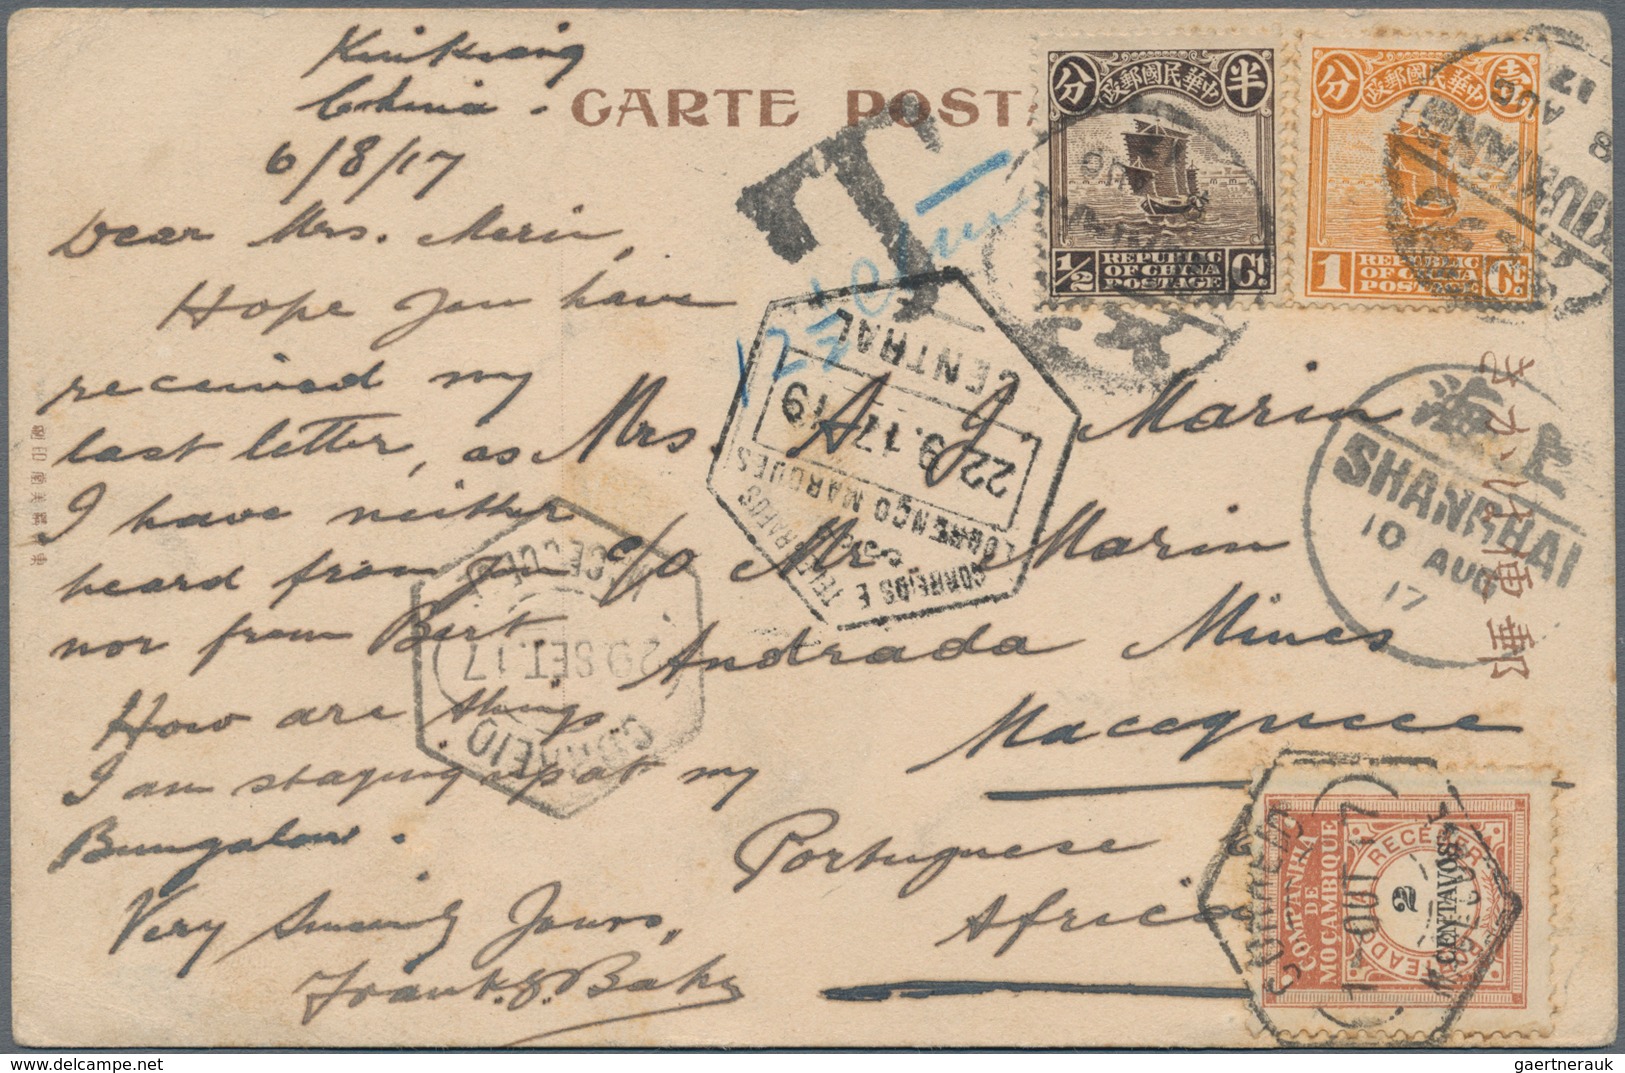 Kiukiang
China.
6/8/17
CARTE POSTA
Dear Mrs. Marin,
Hope you have
received my
last letter, as
I have neither
heard from you
nor from Bert
How are things,
I am staying up at my
Bungalow.
Very Sincerely Yours,
Frank. G. Bake
Mrs. A. J. Marin
c/o Mr Marin
Andrada Mines
Macequece
Portuguese
Africa
T
分 政郵國民華中 半
1/2 REPUBLIC OF CHINA POSTAGE Ct.
分 政郵國民華中 壹
1 REPUBLIC OF CHINA POSTAGE Ct.
KIUKIANG
8 AUG 17
海上
SHANGHAI
10 AUG
17
CENTRAL
22.9.17
LOURENÇO MARQUES
CORREIOS E TELEGRAFOS
29.SET.17
CORREIO
CORREIO
1 OUT 17
COMPANHIA
DE
MOÇAMBIQUE
A RECEBER
2
CENTAVOS
きかは便郵
Delcampe.net
gaertnerauk